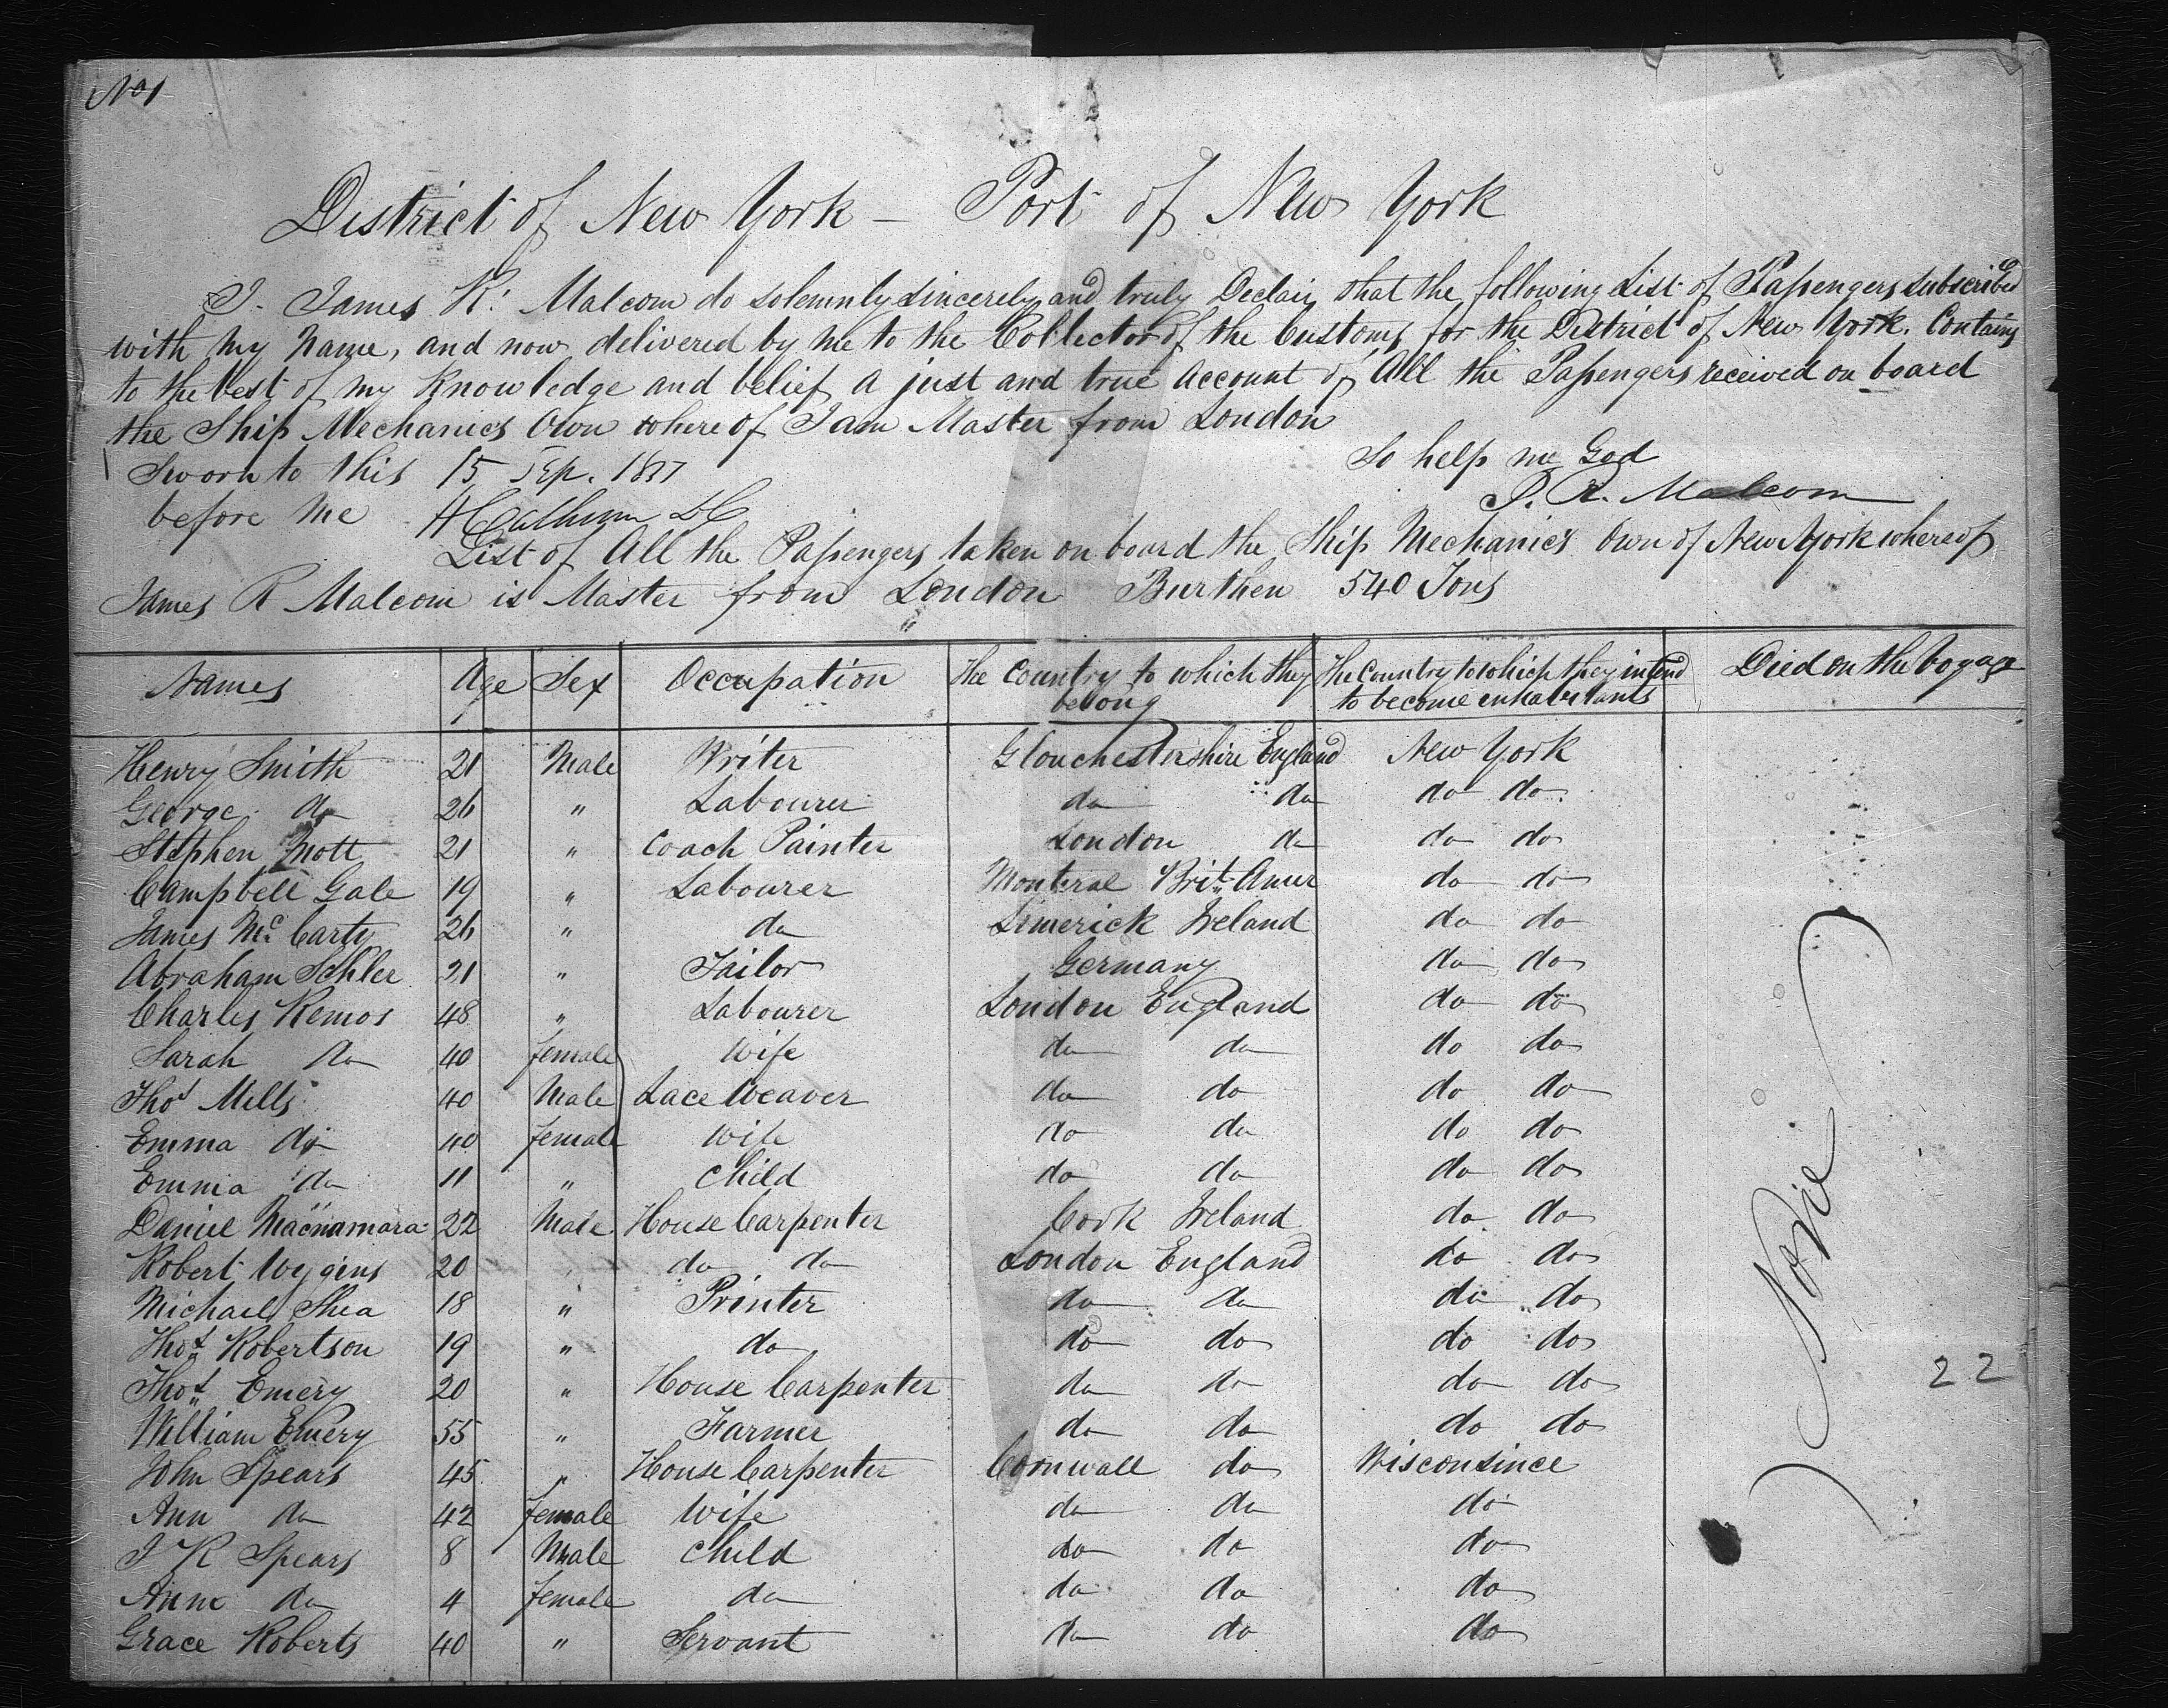 No 1
District of New York — Port of New York
I. James R. Malcom do solemnly sincerely and truly Declair that the following List of Passengers subscribed
with my Name, and now delivered by me to the Collector of the Customs for the District of New York. Contains
to the best of my Knowledge and belief a just and true account of All the Passengers received on board
the Ship Mechanics Own where of I am Master from London
So help me God
Sworn to this 15 Sep. 18
J. R. Malcom
before me H Calhoun DC
List of All the Passengers taken on board the Ship Mechanic's Own of New York whereof
James R Malcom is Master from London Burthen 540 Tons
Names Age Sex Occupation The Country to which they belong The Country to which they intend to become enhabitants Died on the Voyage
Henry Smith 21 Male Writer Glouchestershire England New York
George do 26 " Labourer do do do do
Stephen Mott 21 " Coach Painter London do do do
Campbell Gale 19 " Labourer Monteral Brit Amer do do
James Mc Carty 26 " do Limerick Ireland do do
Abraham Sehler 21 " Tailor Germany do do
Charles Kemos 48 " Labourer London England do do
Sarah do 40 female Wife do do do do
Thos Mills 40 Male Lace Weaver do do do do
Emma do 40 female Wife do do do do
Emma do 11 " Child do do do do
Daniel Macnamara 22 Male House Carpenter Cork Ireland do do
Robert Wiggins 20 " do do London England do do
Michael Shea 18 " Printer do do do do
Thos Robertson 19 " do do do do do
Thos Emery 20 " House Carpenter do do do do
William Emery 55 " Farmer do do do do
John Spears 45 " House Carpenter Cornwall do Wisconsince
Ann do 42 female Wife do do do
J R Spears 8 Male Child do do do
Anne do 4 female do do do do
Grace Roberts 40 " Servant do do do
None
22